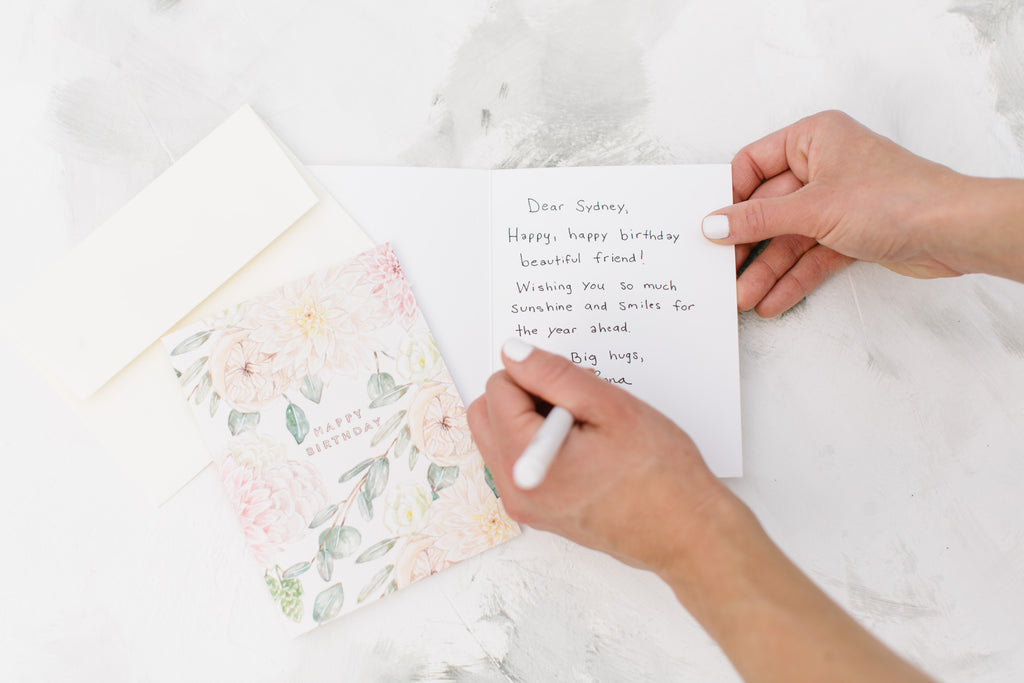 Dear Sydney,
Happy, happy birthday
beautiful friend!
Wishing you so much
sunshine and smiles for
the year ahead.
Big hugs,
HAPPY
BIRTHDAY